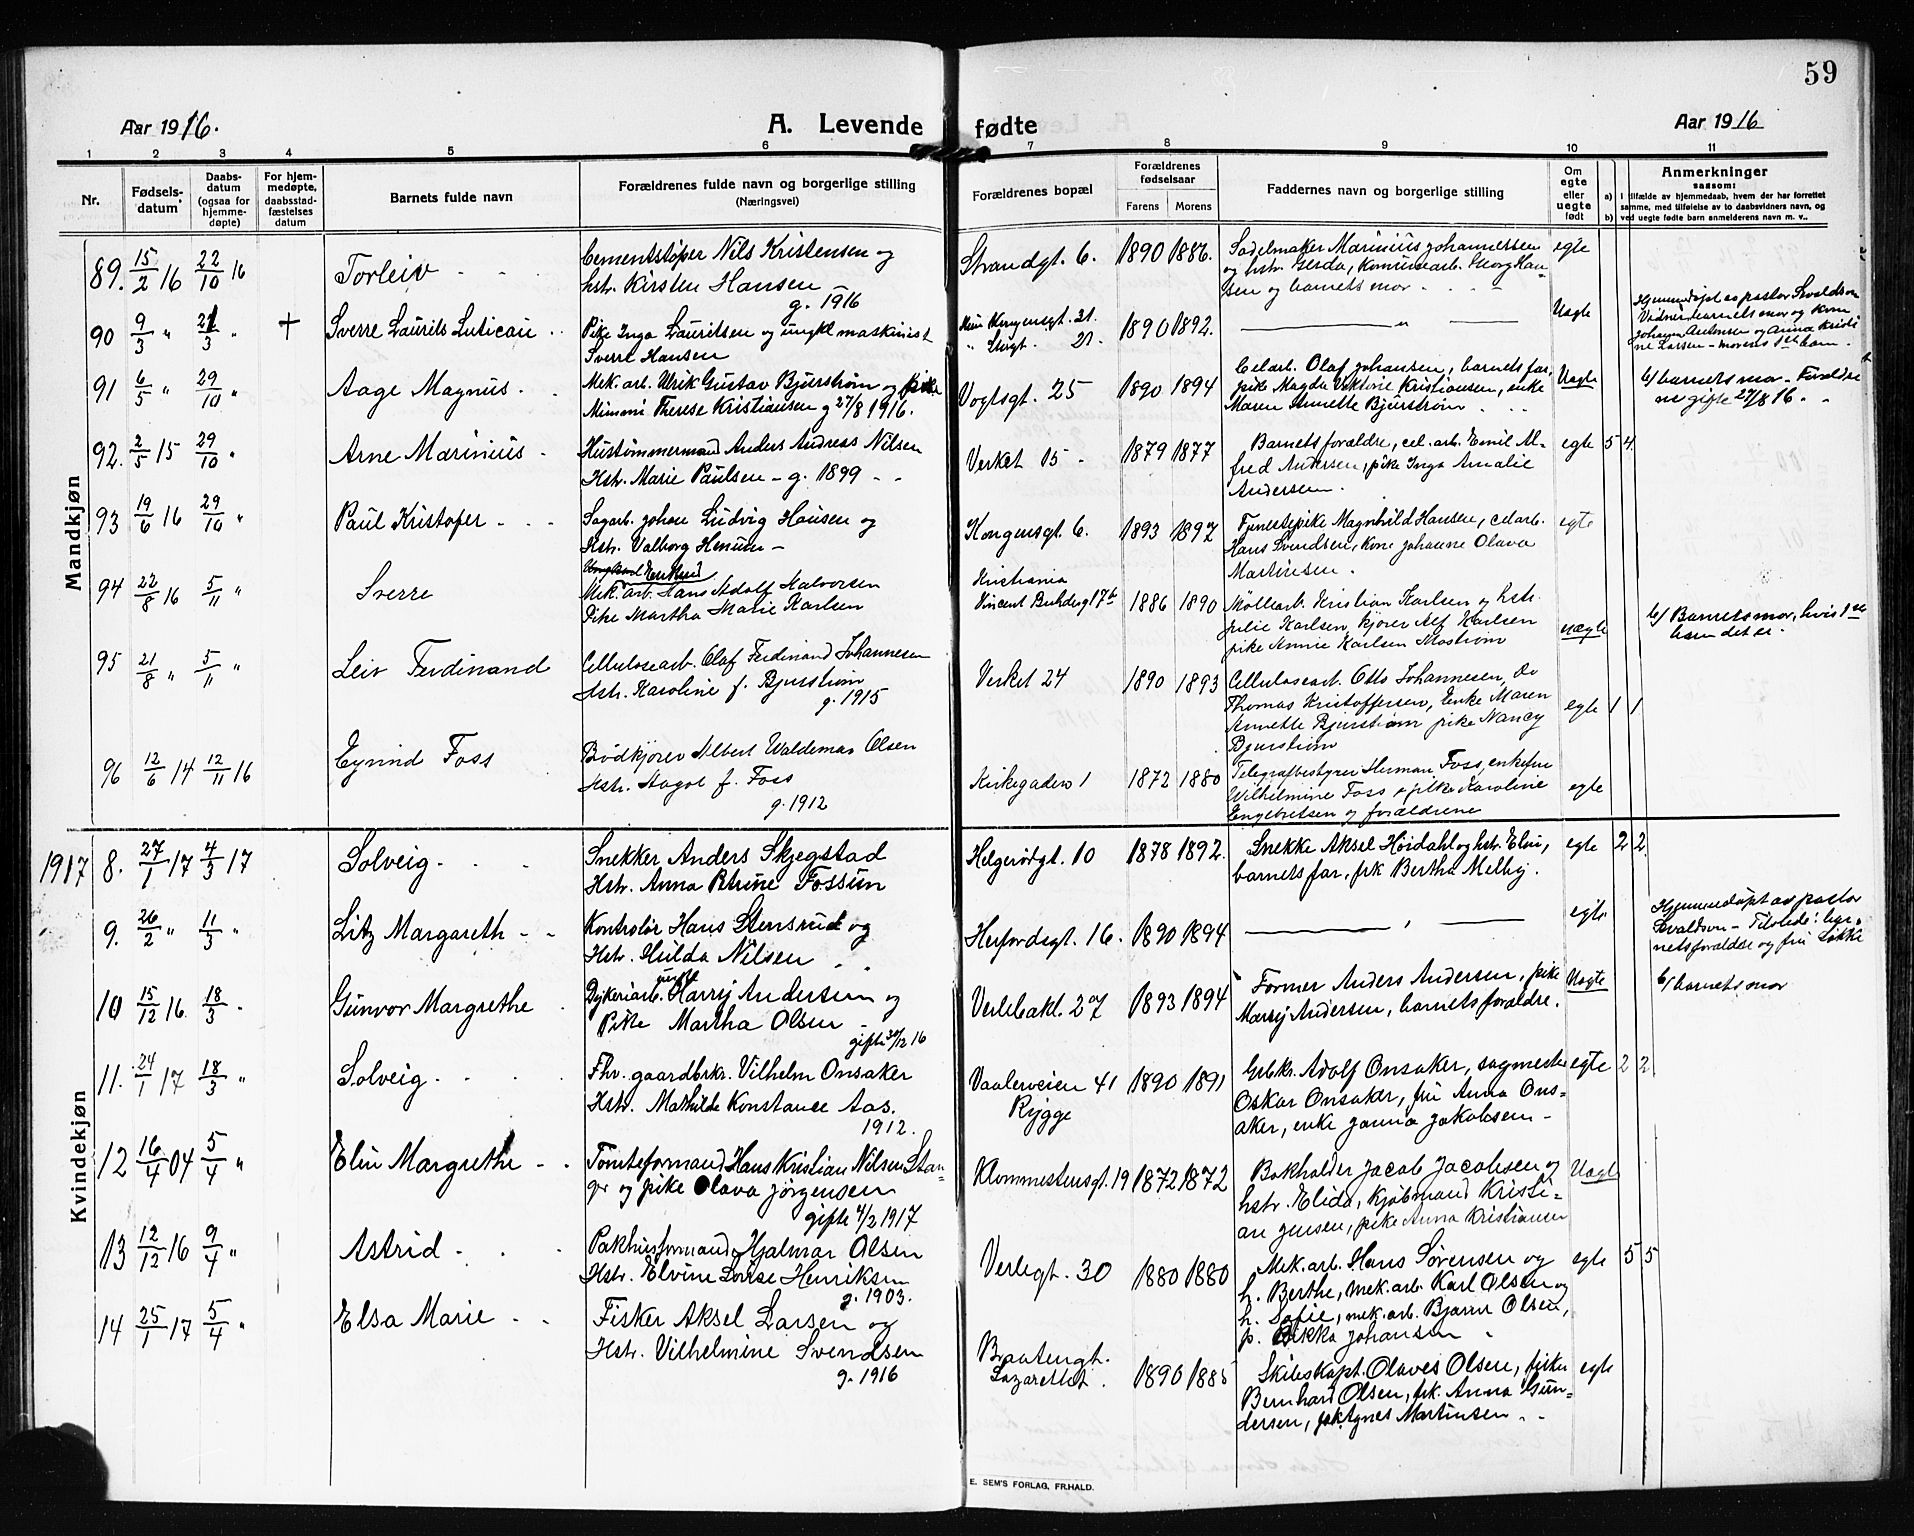 59
Aar 1916.
A. Levende fødte
Aar 1916
1 2 3 4 5 6 7 8 9 10 11
Nr.
Fødsels-
datum
Daabs-
datum
(ogsaa for
hjemme-
døpte)
For hjem-
medøpte,
daabsstad-
fæstelses
datum
Barnets fulde navn
Forældrenes fulde navn og borgerlige stilling
(Næringsvei)
Forældrenes bopæl
Forældrenes
fødselsaar
Farens Morens
Faddernes navn og borgerlige stilling
Om
egte
eller
uegte
født
a)
b)
Anmerkninger
saasom:
I tilfælde av hjemmedaab, hvem der har forrettet
samme, med tilføielse av to daabsvidners navn, og
ved uegte fødte barn anmelderens navn m. v..
Mandkjøn
89. 15/2 16 22/10 16 Torleiv
Cementstøper Nils Kristensen og
hstr. Kirsten Hansen
g. 1916
Strandgt. 6. 1890 1886.
Sadelmaker Marinius Johannessen
og hstr. Gerda, Komunearb. Georg Han-
sen og barnets mor
egte
90 9/3 " 21/3 " + Sverre Laurits
Pike Inga Lauritsen og ungkl. maskinist
Sverre Hansen
21.
21. 1890 1892. — " —
Uagte
Hjemmedøpt av pastor
barnets mor og
Johanna og Anna Kristi
ne Larsen - morens 1ste barn.
91 6/5 " 29/10 " Aage Magnus
Mek. arb. Ulrik Gustav Bjurstrøm og pike
Mimmi Therese Kristiansen g 27/8 1916.
Vogtsgt. 25 1890 1894
Cel.arb. Olaf Johansen, barnets far,
pike Magda Viktorie Kristiansen, enke
Maren Annette Bjurstrøm
Uagte
b/ barnets mor - Foreldre
ne gifte 27/8 16.
92. 2/5 15 29/10 " Arne Marinius
Hustømmermand Anders Andreas Nilsen
Hstr. Marie Paulsen - g. 1899
Verket 15 1879 1877
Barnets foraldre, cel. arb. Emil Al-
fred Andersen, pike Inga Amalie
Andersen.
egte 5 4.
93 19/6 16 29/10 " Paul Kristofer
Sagarb. Johan Ludvig Hansen og
Hstr. Valborg Henum -
Kongensgt. 6. 1893 1897
Tjenestepike Magnhild Hansen, cel.arb.
Hans Svendsen, Kone Johanne Olava
Martinsen.
egte
94 22/8 16 5/11 Sverre
Mek. arb. Hans Adolf Halvorsen
Pike Martha Marie Karlsen
Kristiania
Vincent 17b 1886 1890
Møllearb. Kristian Karlsen og hstr.
Julie Karlsen, kjører Alf Karlsen
pike Annie Karlsen Mostrøm
uægte
b/ Barnets mor, hvis 1ste
barn det er.
95 21/8 " 5/11 " Leiv Ferdinand
Cellulosearb. Olaf Ferdinand Johannesen
Hstr. Karoline f. Bjurstrøm
g. 1915
Verket 24 1890 1893
Cellulosearb. Otto Johannesen, Do
Thomas Kristoffersen, Enke Maren
Annette Bjurstrøm pike Nancy
Bjurstrøm
egte 1 1
96 12/6 14 12/11 16 Eyvind Foss
Brødkjører Albert Waldemar Olsen
Hstr. Aagot f. Foss
g. 1912
Kirkegaden 1 1872 1880
Telegrafbestyrer Herman Foss, enkefru
Wilhelmine Foss pike Karoline
Engebretsen og foraldrene
egte
1917
Kvindekjøn
8. 27/1 17 4/3 17 Solveig
Snekker Anders Skjegstad
Hstr. Anna Petrine Fossum
Helgerødgt. 10 1878 1892.
Snekke Aksel Høidahl og hstr. Elin,
barnets far, frk Bertha Melby.
egte 2 2.
9. 26/2 " 11/3 " Litz Margareth
Kontrolør Hans Stensrud og
Hstr. Hulda Nilsen
Herfordsgt. 16. 1890 1894 — " —
egte
Hjemmedøpt av pastor
Evaldsen - Tilstede: bar-
netsforaldre og fru Løkke
10 15/12 16. 18/3 Gunvor Margrethe
Dykeriarb. Harry Andersen og
Pike Martha Olsen
gifte 30/12 16
Verlebakl. 2 1893 1894
Former Anders Andersen, pike
Marry Andersen, barnets foraldre.
Uagte
b/ barnets mor
11. 24/1 17 18/3 " Solveig
Fhv. gaardbrkr. Vilhelm Onsaker
Hstr. Mathilde Konstance Aas.
1912.
Vaalerveien 41
Rygge
1890 1891
Grbkr. Adolf Onsaker, sagmester
Oskar Onsaker, fru Anna Ons-
aker, enke Janna Jakobsen -
egte 2 2
12 16/4 04 5/4 " Elin Margrethe
Tomteformand Hans Kristian Nilsen Stan-
ge og pike Olava Jørgensen
gifte 4/2 1917
Klommestensgt. 19 1872 1872
Bokholder Jacob Jacobsen og
hstr. Elida, Kjøbmand Kristi-
an Jensen, pike Anna Kristiansen
Uagte
13 12/12 16 9/4 " Astrid
Pakhusformand Hjalmar Olsen
Hstr. Elvine Lovise Henriksen
g. 1903.
Verlegt. 30 1880 1880
Mek. arb. Hans Sørensen og
h. Berthe, mek. arb. Karl Olsen og
h. Sofie, mek. arb. Bjarne Olsen,
p. Rikka Johansen
egte 5 5
14 25/1 17 5/4 " Elsa Marie
Fisker Aksel Larsen og
Hstr. Vilhelmine Svendsen
g. 1916
Braatengt.
Lazarettet. 1890 1885
Skibskapt. Olaves Olsen, fisker
Bernhard Olsen, frk. Anna Gun-
dersen, frk Agnes Martinsen
egte
E. SEM'S FORLAG, FR.HALD.